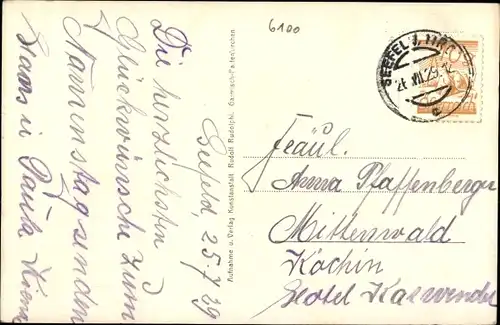 6100
SEEFELD
Seefeld, 25.7.29
Die herzlichsten
Glückwünsche zum
Namenstag senden
u Paula
Aufnahme u. Verlag Kunstanstalt Rudolf Rudolphi, Garmisch-Partenkirchen
Fräul.
Anna Pfaffenberger
Mittenwald
Köchin
Hotel Karwendel